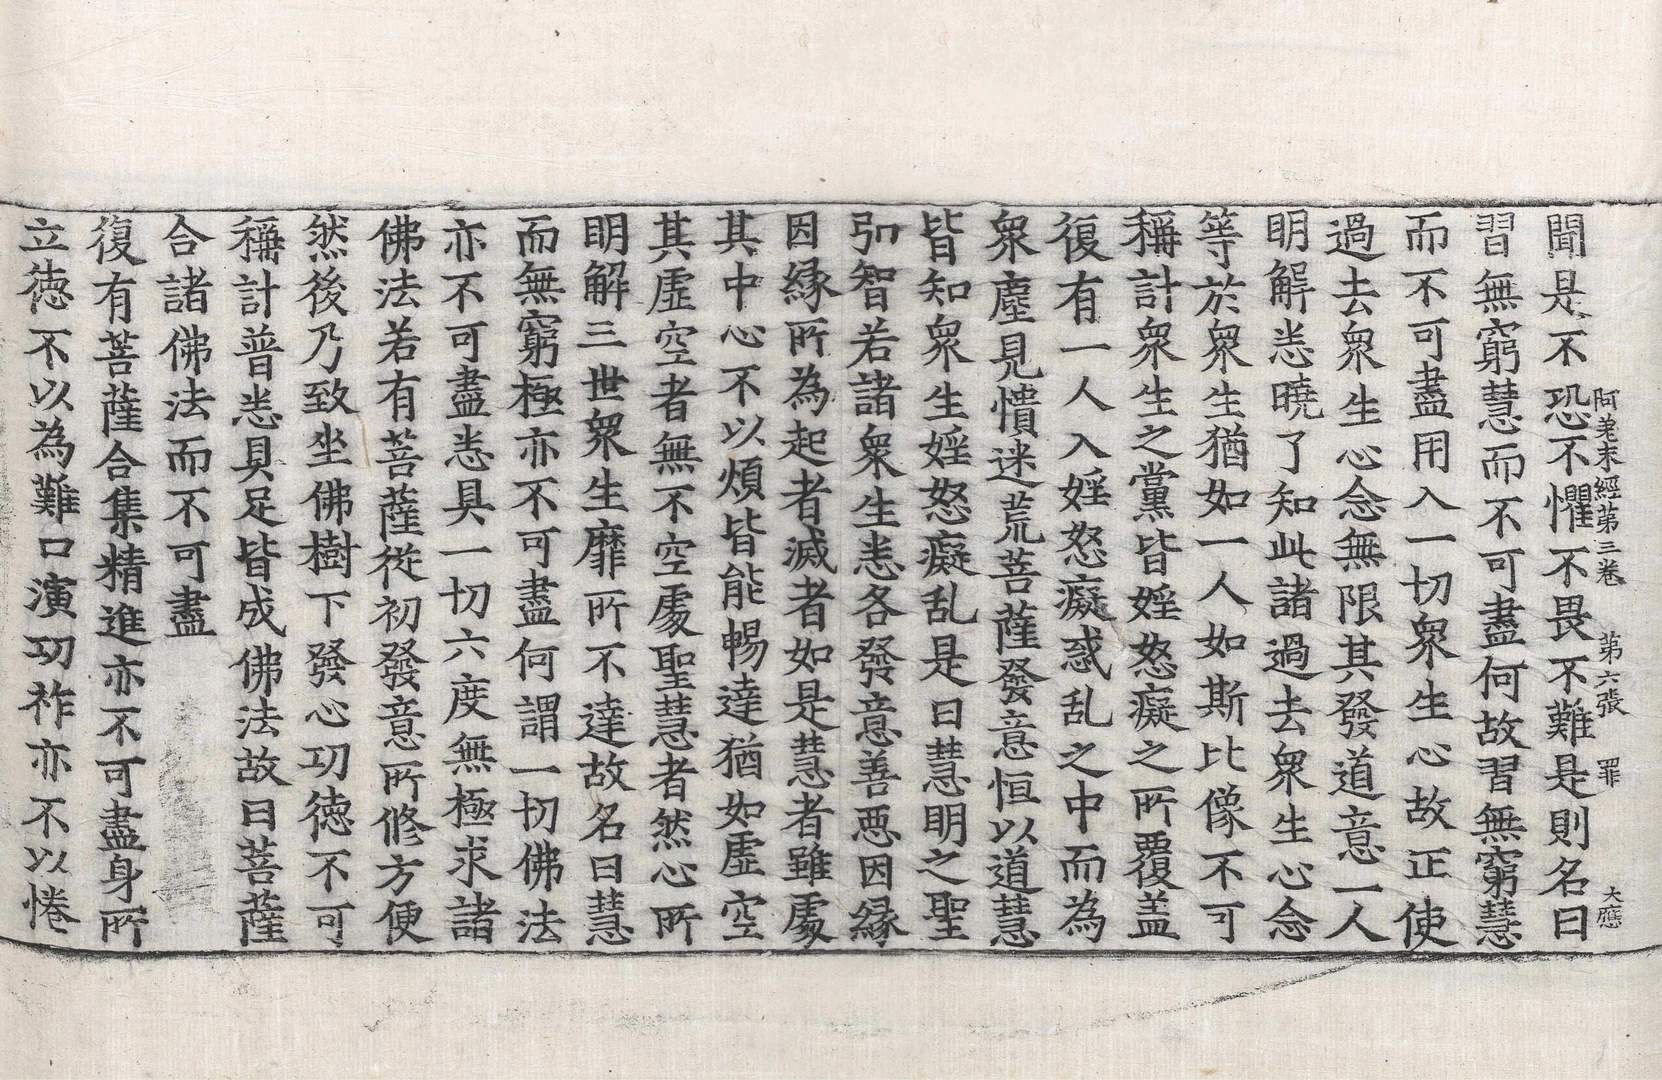 阿差末經第三卷　第六張　罪　大應
聞是不恐不懼不畏不難是則名曰
習無窮慧而不可盡何故習無窮慧
而不可盡用入一切衆生心故正使
過去衆生心念無限其發道意一人
明解悉曉了知此諸過去衆生心念
等於衆生猶如一人如斯比像不可
稱計衆生之黨皆婬怒癡之所覆盖
復有一人入婬怒癡惑乱之中而為
衆塵見憒迷荒菩薩發意恒以道慧
皆知衆生婬怒癡乱是曰慧明之聖
引智若諸衆生悉各發意善惡因縁
因縁所為起者滅者如是慧者雖處
其中心不以煩皆能暢達猶如虛空
其虛空者無不空處聖慧者然心所
明解三世衆生靡所不達故名曰慧
而無窮極亦不可盡何謂一切佛法
亦不可盡悉具一切六度無極求諸
佛法若有菩薩從初發意所修方便
然後乃致坐佛樹下發心功德不可
稱計普悉具足皆成佛法故曰菩薩
合諸佛法而不可盡
復有菩薩合集精進亦不可盡身所
立德不以為難口演功祚亦不以惓